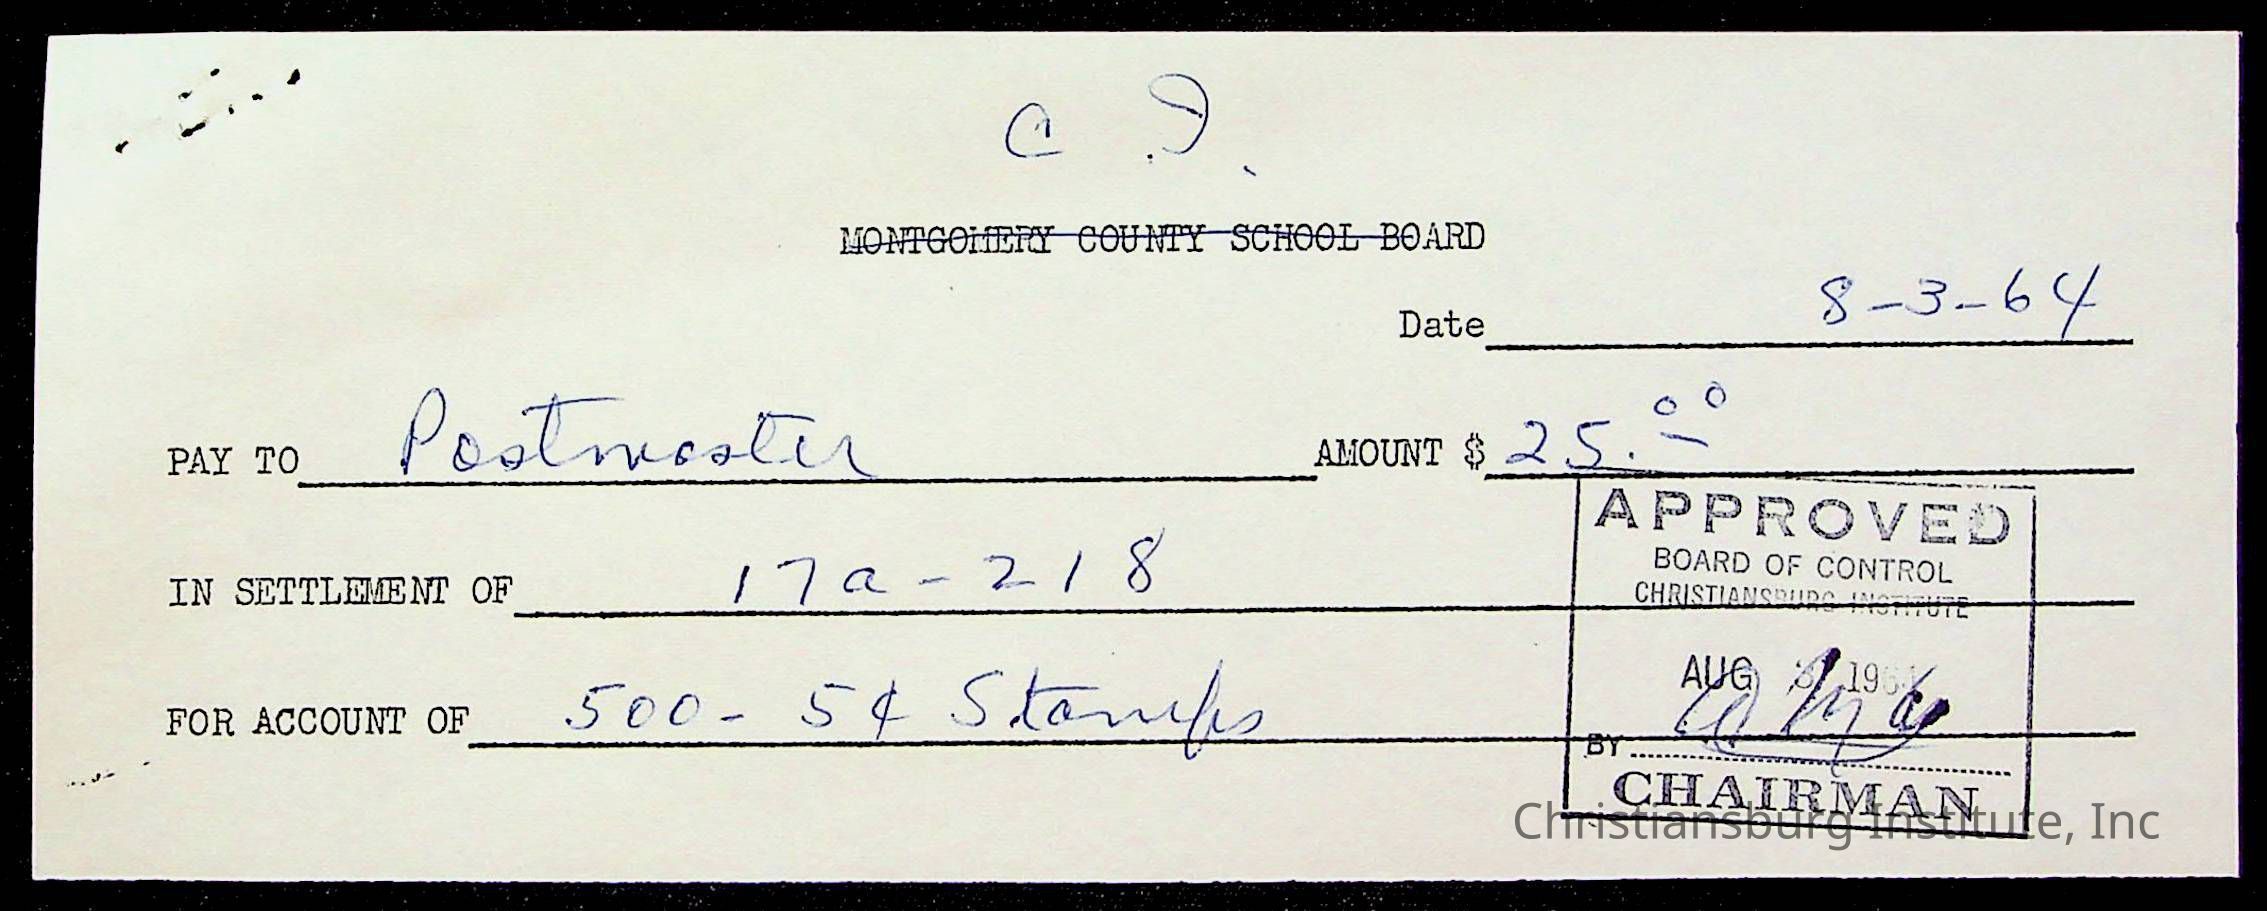 C .I.
MONTGOMERY COUNTY SCHOOL BOARD
Date 8-3-64
PAY TO Postmaster AMOUNT $ 25.00
IN SETTLEMENT OF 17a-218
FOR ACCOUNT OF 500- 5¢ Stamps
APPROVED
BOARD OF CONTROL
CHRISTIANSBURG INSTITUTE
AUG 3 1964
BY
CHAIRMAN
Christiansburg Institute, Inc